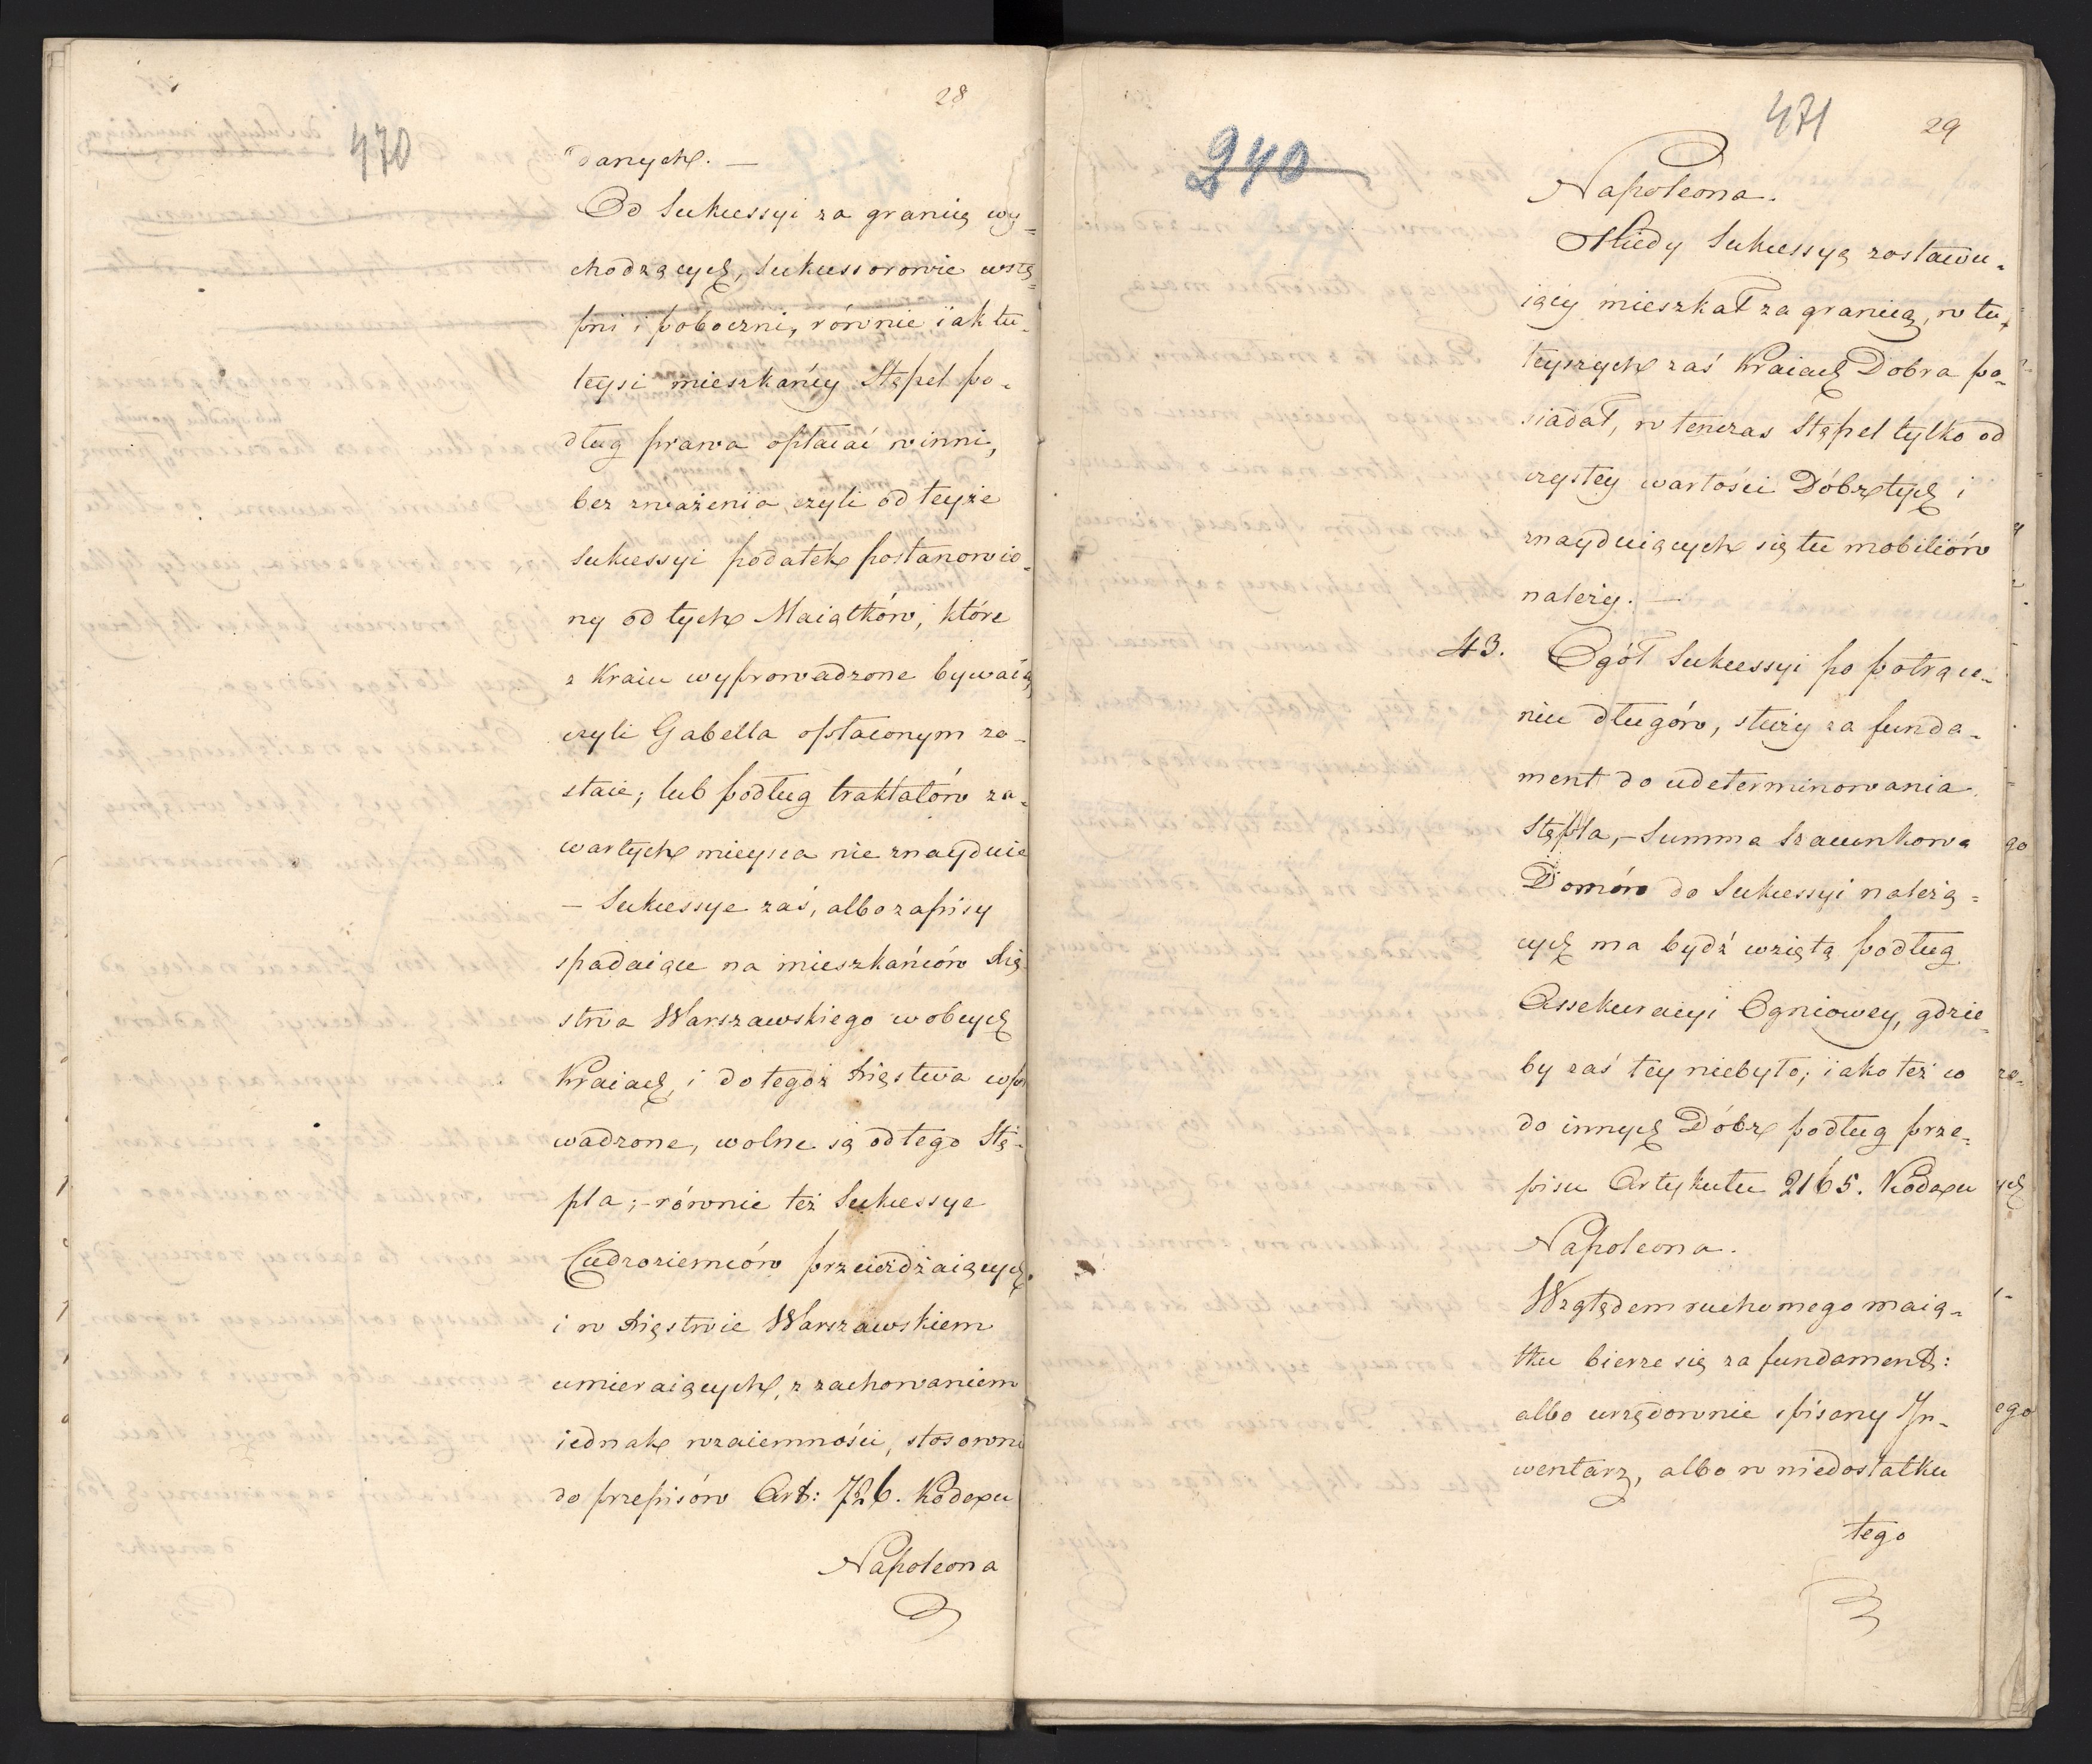 28
470
danych. —
Od Sukcessyi za granicę wy=
chodzących, Sukcessorowie wstę=
pni i poboczni, równie iak tu-
teysi mieszkańcy Stępel po-
dług prawa opłacać winni,
bez zważenia, czyli od teyże
Sukcessyi podatek postanowio-
ny od tych Maiątków, które
z Kraiu wyprowadzone bywaią
czyli Gabella opłaconym zo-
staie; lub podług traktatów za-
wartych mieysca nie znayduie
— Sukcessye zaś, albo zapisy
spadaiące na mieszkańców Xię
stwa Warszawskiego w obcych
Kraiach, i do tegoż Xięstwa wpr
wadzone, wolne są od tego Stę-
pla; – równie też Sukcessye
Cudzoziemców przeieżdżaiących
i w Xięstwie Warszawskiem
umieraiących, z zachowaniem
iednak wzaiemności, stosowni
do przepisów Art: 726. Kodexu
Napoleona
240
471
29
Napoleona.
Kiedy Sukcessyą zostawu-
iący mieszkał za granicą, w tu-
teyszych zaś Kraiach Dobra po-
siadał, w tenczas Stępel tylko od
czystey wartości Dóbr tych i
znayduiących się tu mobiliów
należy. —
43. Ogół Sukcessyi po potrące-
niu długów, służy za funda-
ment do udeterminowania
Stępla, – Summa Szacunkowa
Domów do Sukcessyi należą=
cych ma bydź wziętą podług
Assekuracyi Ogniowey, gdzie-
by zaś tey niebyło; iako też co
do innych Dóbr podług prze-
pisu Artykułu 2165. Kodexu
Napoleona.
Względem ruchomego maią-
tku bierze się za fundament:
albo urzędownie spisany In-
wentarz, albo w niedostatku
tego